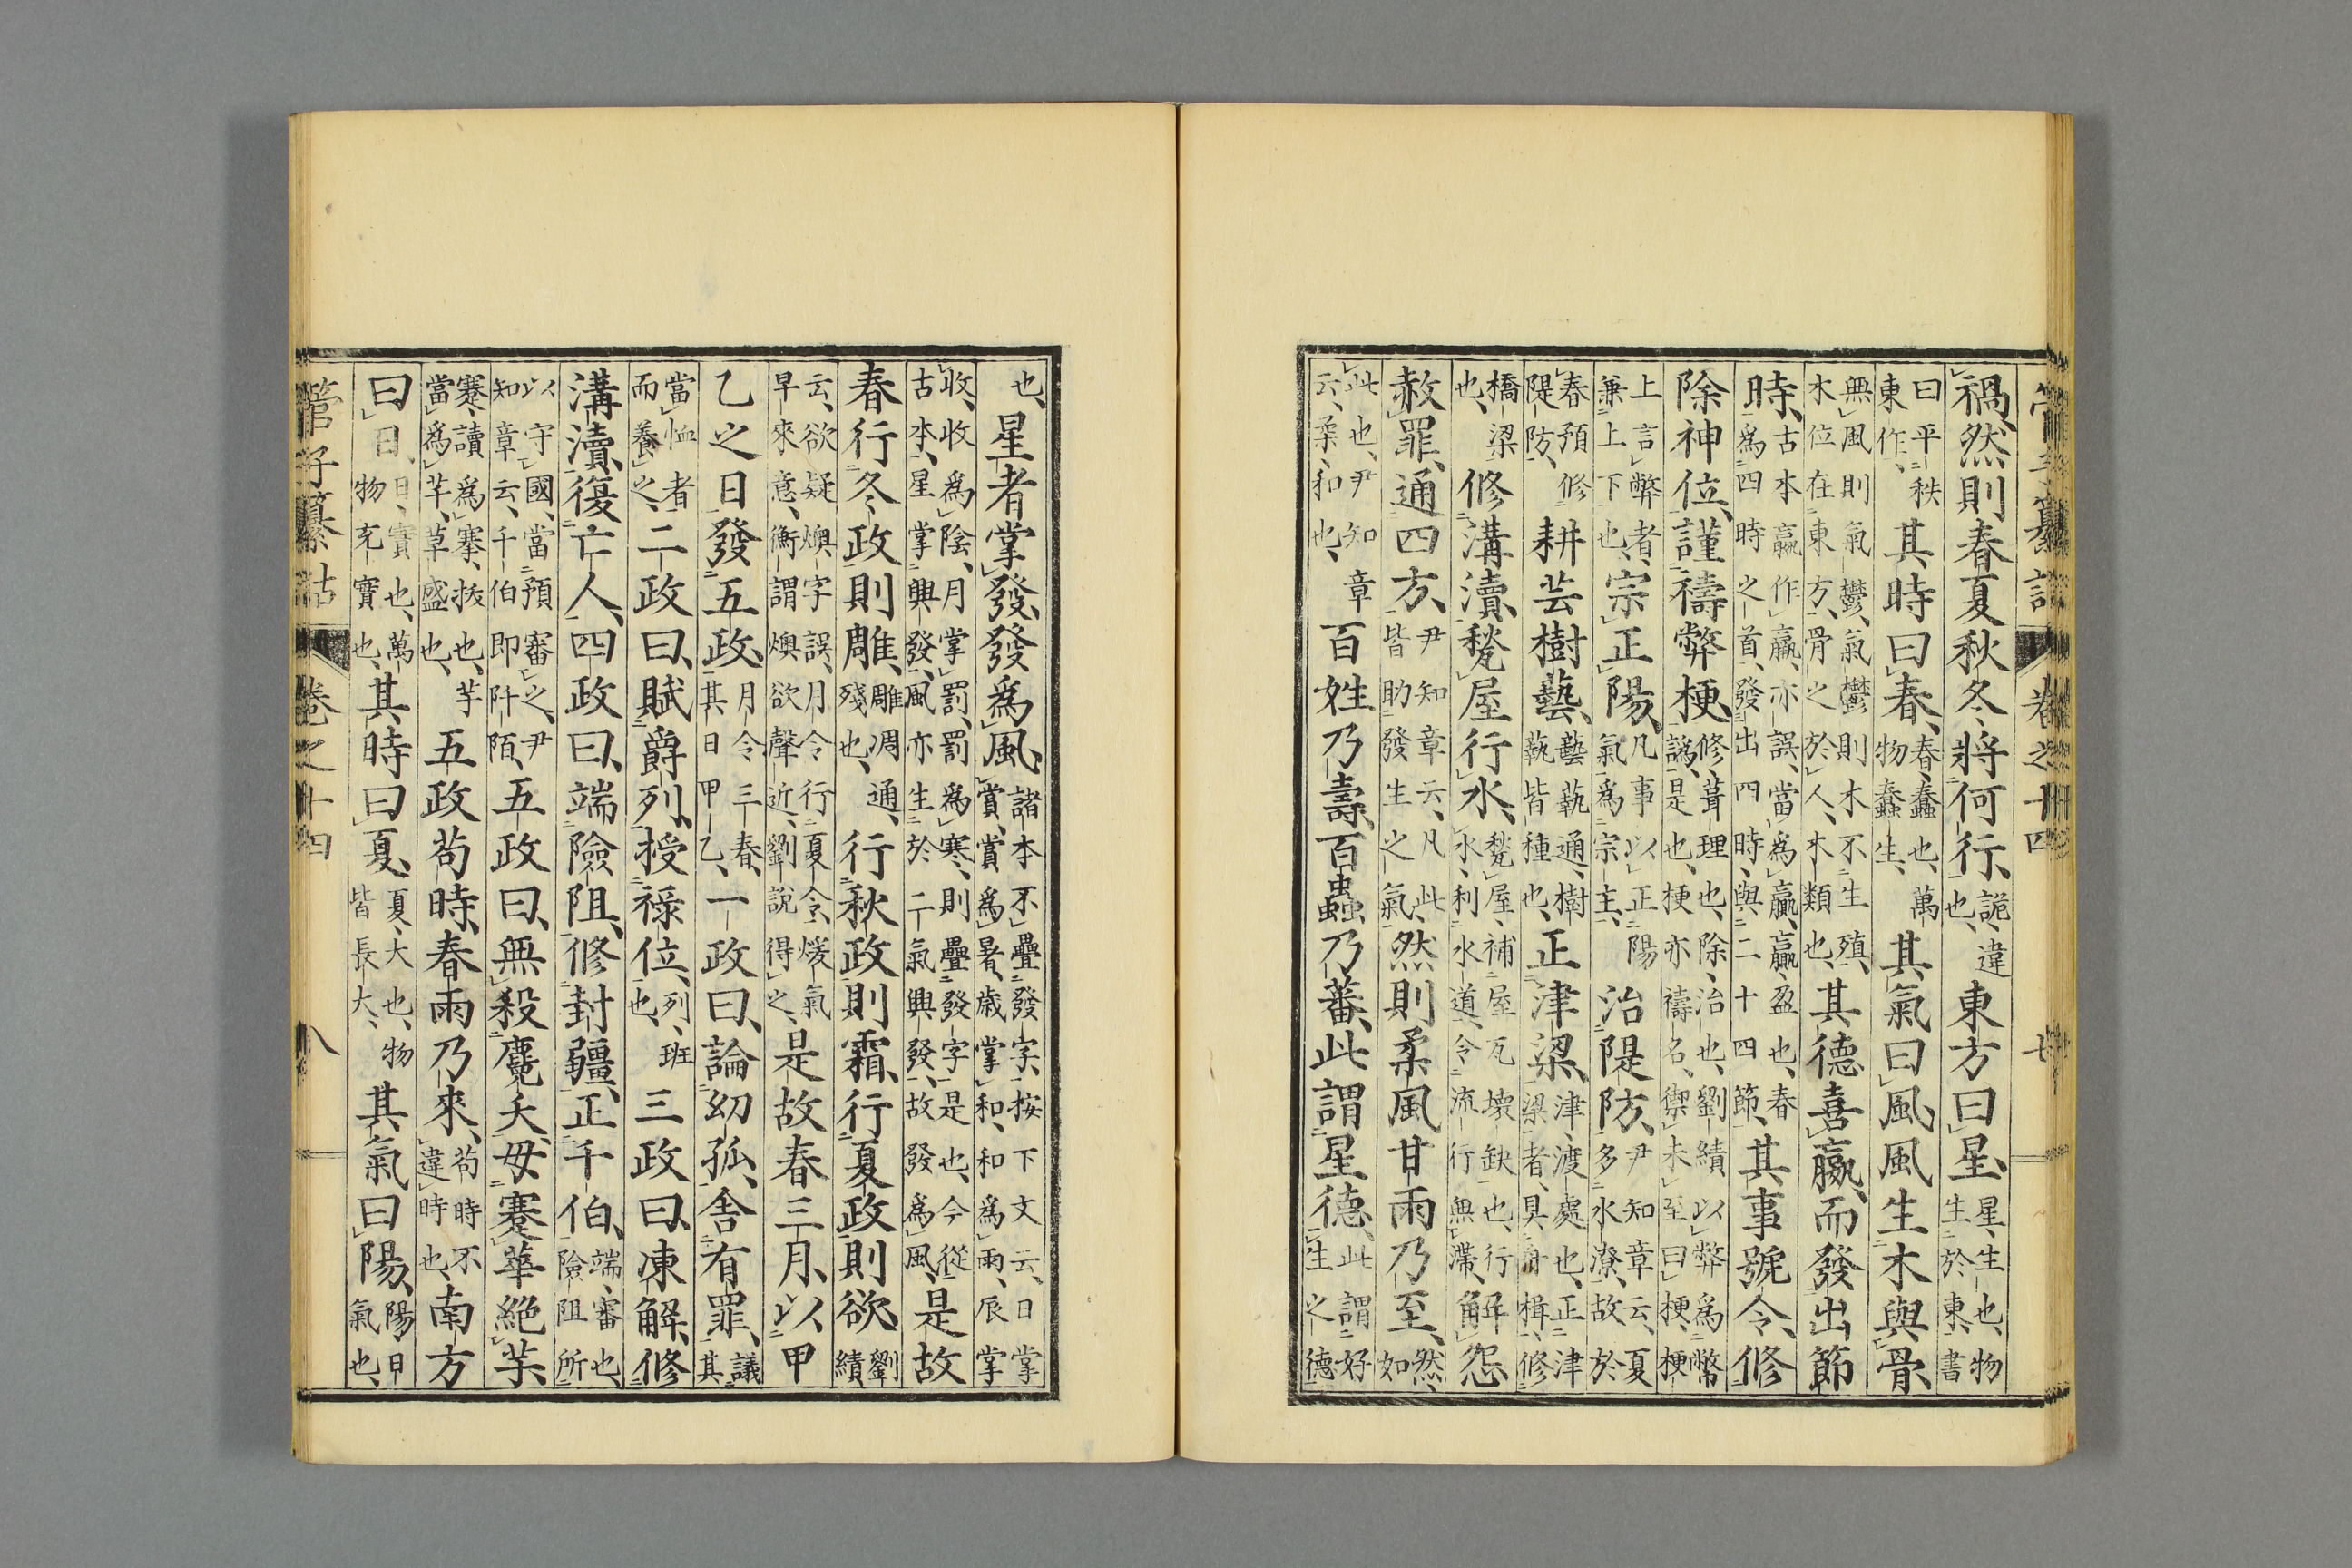 管子纂詁 卷之十四 七
禍、然則春夏秋冬將何行、詭、違也、東方曰星、星、生也、物生於東、書
曰平秩東作、其時曰春、春、蠢也、萬物蠢生、其氣曰風、風生木與骨、
無風則氣鬱、氣鬱則木不生殖、木位在東方、骨之於人、木類也、其德喜嬴、而發出節
時、古本嬴作羸、亦誤、當爲贏、贏、盈也、春爲四時之首、發出四時、與二十四節、其事號令、修
除神位、謹禱弊梗、修、葺理也、除、治也、劉績以弊爲幣譌、是也、梗亦禱名、禦未至曰梗、梗
上言弊者、兼上下也、宗正陽、凡事以正陽氣爲宗主、治隄防、尹知章云、夏多水潦、故於
春預修隄防、耕芸樹藝、藝蓺通、樹蓺皆種也、正津梁、津、渡處也、正津梁者、具舟楫、修
橋梁也、修溝瀆、甃屋行水、甃屋、補屋瓦壞缺也、行水、利水道、令流行無滯、解怨
赦罪、通四方、尹知章云、凡此皆助發生之氣、然則柔風甘雨乃至、然、如
此也、尹知章云、柔、和也、百姓乃壽、百蟲乃蕃、此謂星德、此謂好生之德
也、星者掌發、發爲風、諸本不疊發字、按下文云、日掌賞、賞爲暑、歲掌和、和爲雨、辰掌
收、收爲陰、月掌罰、罰爲寒、則疊發字是也、今從古本、星掌興發、風亦生於二氣興發、故發爲風、是故
春行冬政則雕、雕凋通、殘也、行秋政則霜、行夏政則欲、劉績
云、欲疑燠字誤、月令行夏令、煖氣早來意、衡謂燠欲聲近、劉說得之、是故春三月、以甲
乙之日發五政、月令三春、其日甲乙、一政曰、論幼孤、舍有罪、議其
當恤者而養之、二政曰、賦爵列、授祿位、列、班也、三政曰、凍解、修
溝瀆、復亡人、四政曰、端險阻、修封疆、正千伯、端、審也、險阻所
以守國、當預審之、尹知章云、千伯即阡陌、五政曰、無殺麑夭、毋蹇華絕芋、
蹇、讀爲搴、搴、拔也、芋當爲芊、草盛也、五政苟時、春雨乃來、苟時不違時也、南方
曰日、日、實也、萬物充實也、其時曰夏、夏、大也、物皆長大、其氣曰陽、陽、日氣也、
管子纂詁 卷之十四 八